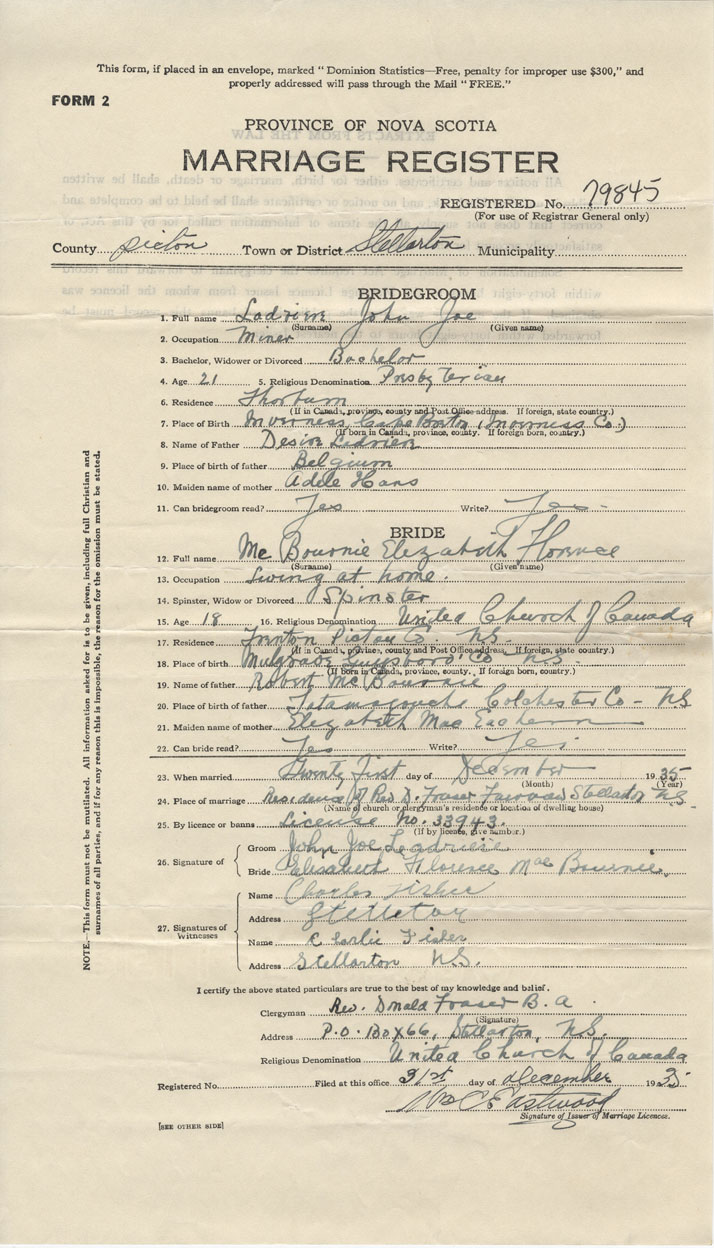 This form, if placed in an envelope, marked "Dominion Statistics—Free, penalty for improper use $300," and
properly addressed will pass through the Mail "FREE."
FORM 2
PROVINCE OF NOVA SCOTIA
MARRIAGE REGISTER
REGISTERED No. 79845
(For use of Registrar General only)
County Picton Town or District Stellarton Municipality
BRIDEGROOM
1. Full name Ladriere John Joe
(Surname) (Given name)
2. Occupation Miner
3. Bachelor, Widower or Divorced Bachelor
4. Age 21 5. Religious Denomination Presbyterian
6. Residence Thorburn
(If in Canada, province, county and Post Office address. If foreign, state country.)
7. Place of Birth Inverness, Cape Breton (Inverness Co.)
(If born in Canada, province, county. If foreign born, country.)
8. Name of Father Desire
9. Place of birth of father Belgium
10. Maiden name of mother Adele Hans
11. Can bridegroom read? Yes Write? Yes
BRIDE
12. Full name Mc Bournie Elezabeth Florence
(Surname) (Given name)
13. Occupation Living at home.
14. Spinster, Widow or Divorced Spinster
15. Age 18 16. Religious Denomination United Church of Canada
17. Residence Trenton Pictou Co. N.S.
(If in Canada, province, county and Post Office address. If foreign, state country.)
18. Place of birth Mulgrave Guysboro Co N.S.
(If born in Canada, province, county. If foreign born, country.)
19. Name of father Robert Mc Bournie
20. Place of birth of father Tatamagouche Colchester Co - NS
21. Maiden name of mother Elezabeth Mac Eachern
22. Can bride read? Yes Write? Yes
23. When married Twenty First day of December 1935
(Month) (Year)
24. Place of marriage Residence of Rev D. Fraser Stellarton NS.
(Name of church or clergyman's residence or location of dwelling house)
25. By licence or banns License No. 33943.
(If by license, give number.)
26. Signature of
Groom John Joe
Bride Elisabeth Florence Mac Bournie
27. Signatures of Witnesses
Name Charles Fisher
Address
Name Charlie Fisher
Address Stellarton N.S.
I certify the above stated particulars are true to the best of my knowledge and belief.
Clergyman Rev. Donald Fraser B.A.
(Signature)
Address P.O. Box 66, Stellarton, N.S.
Religious Denomination United Church of Canada
Registered No. Filed at this office 31st day of December 1935
Eastwood
Signature of Issuer of Marriage Licences.
[SEE OTHER SIDE]
NOTE.—This form must not be mutilated. All information asked for is to be given, including full Christian and
surnames of all parties, and if for any reason this is impossible, the reason for the omission must be stated.